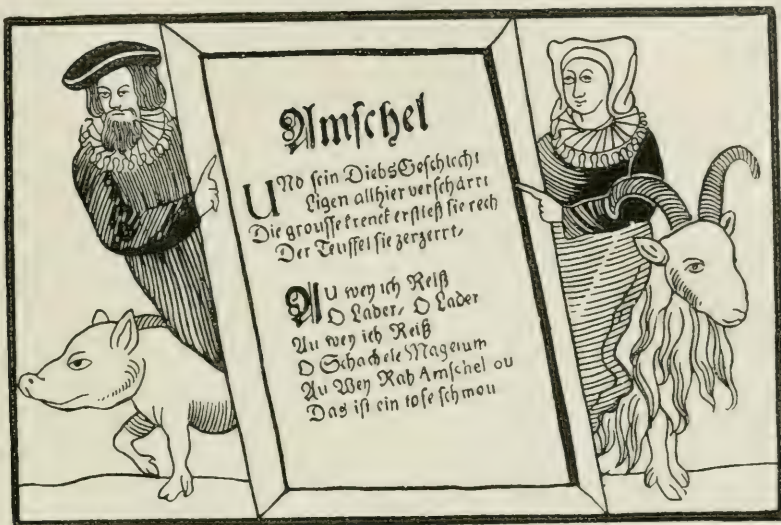 Amschel
UNd sein DiebsGeschlecht
Ligen allhier verscharrt
Die grousse krenck erstieß sie rech
Der Teuffel sie zerzerrt,
AU wey ich Reiß
O Lader, O Lader
Au wey ich Reiß
O Schachele Mageium
Au Wey Rab Amschel ou
Das ist ein tofe schmou